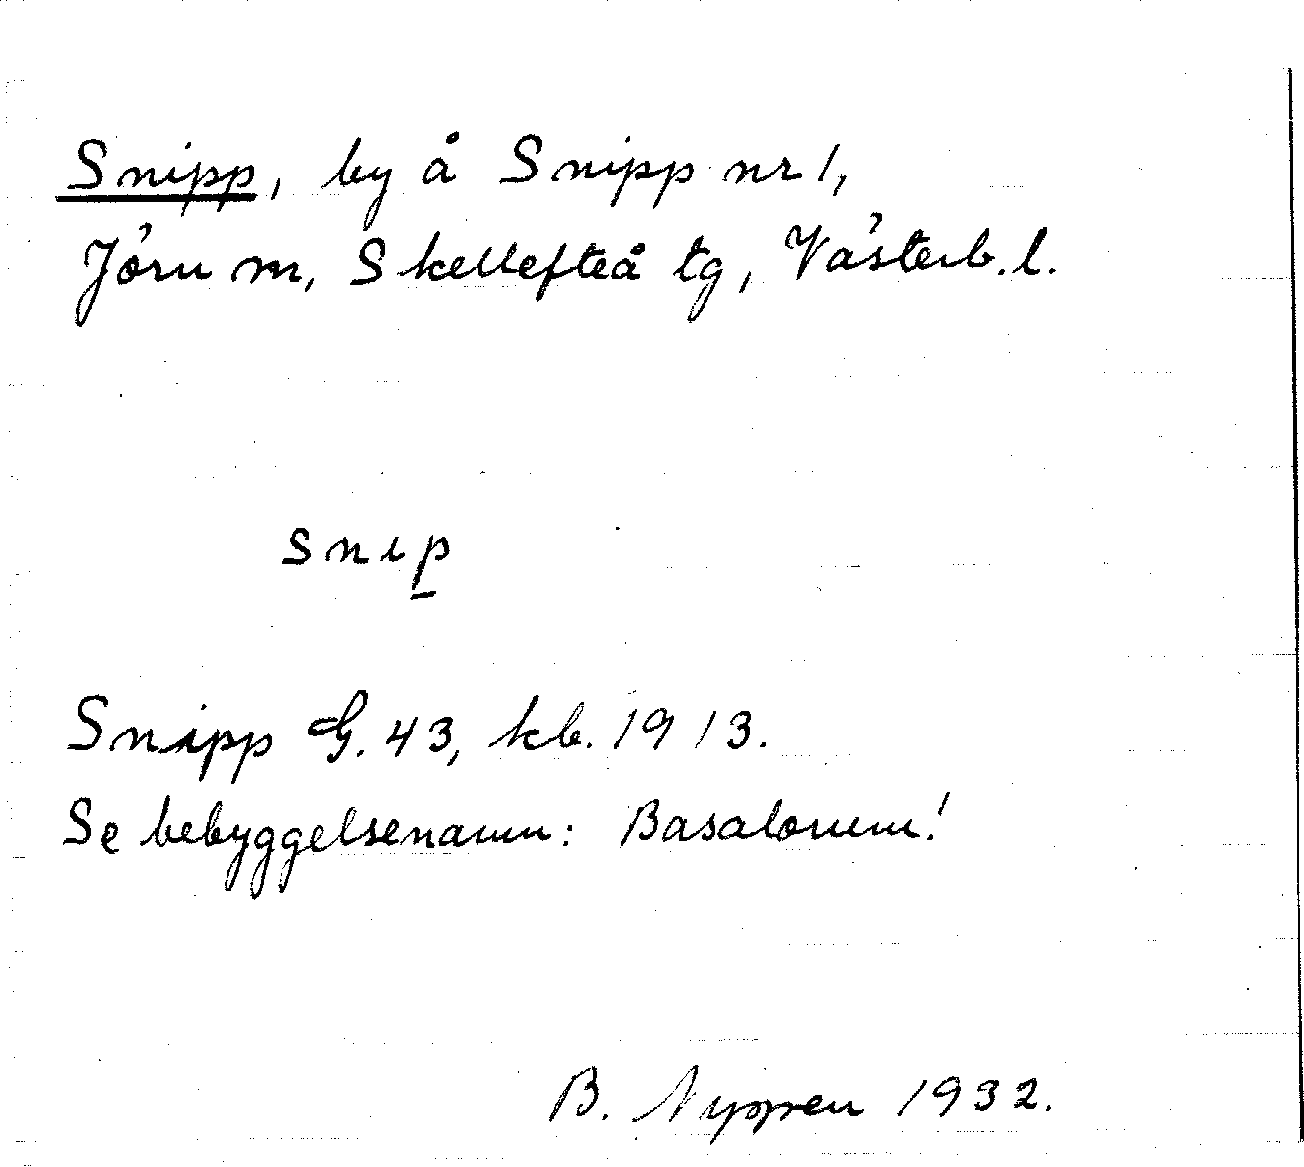 Snipp, by å Snipp nr 1,
Jörn sn, Skellefteå tg, Västerb. l.
snip
Snipp G. 43, kb. 1913.
Se bebyggelsenamn:
B. 1932.